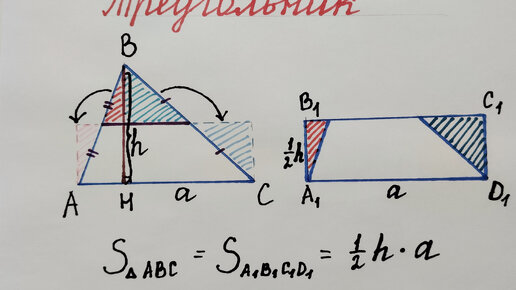 Треугольник
B
h
A H a C
B₁ C₁
½h
A₁ a D₁
S△ABC = SA₁B₁C₁D₁ = ½ h · a